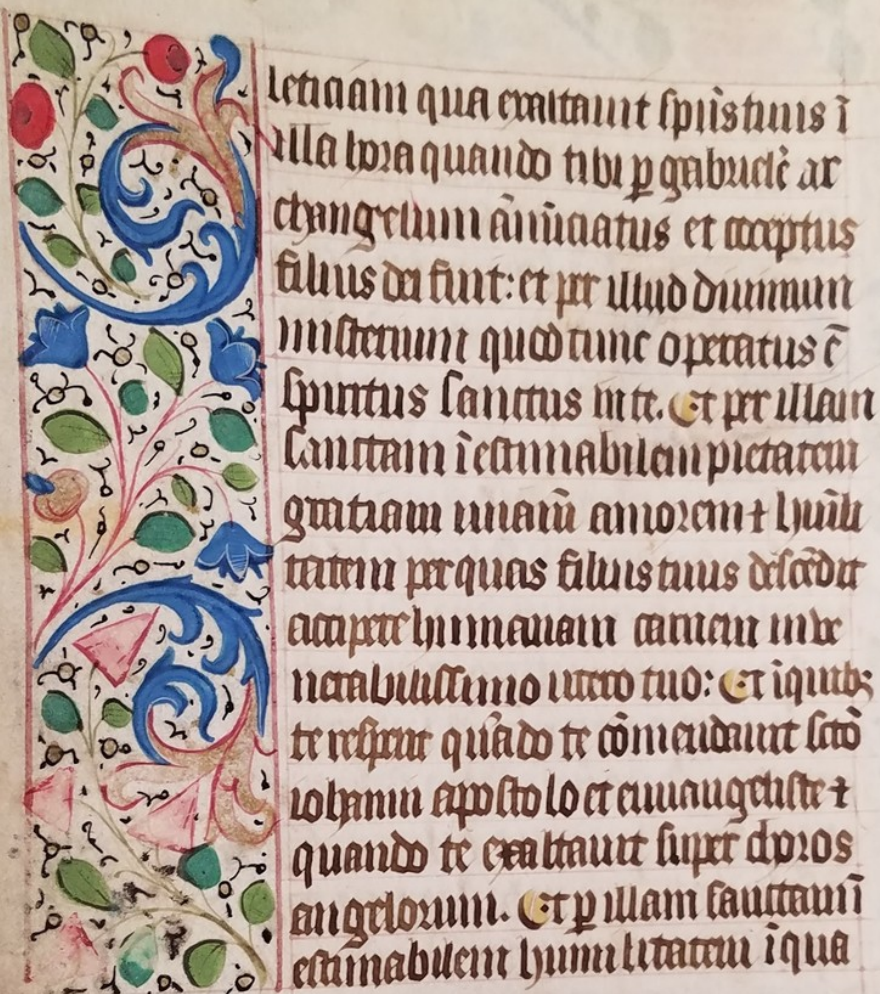 leticiam qua exaltauit sp̄us tuus ī
illa hora quando tibi ꝑ gabrielē ar
changelum ān̄uciatus et cōceptus
filius dei fuit: et per illud diuinum
misterium quod tunc operatus ē
spiritus sanctus in te. Et per illam
sanctam īestimabilem pietatem
gratiam amorem ⁊ humili
tatem per quas filius tuus descēdit
accipere humanam carnem in ve
nerabilissimo utero tuo: Et ī quibꝫ
te respexit quādo te cōmendauit scō
iohanni apostolo et euuangeliste ⁊
quando te exaltauit super choros
angelorum. Et ꝑ illam sanctam ī
estimabilem humilitatem ī qua